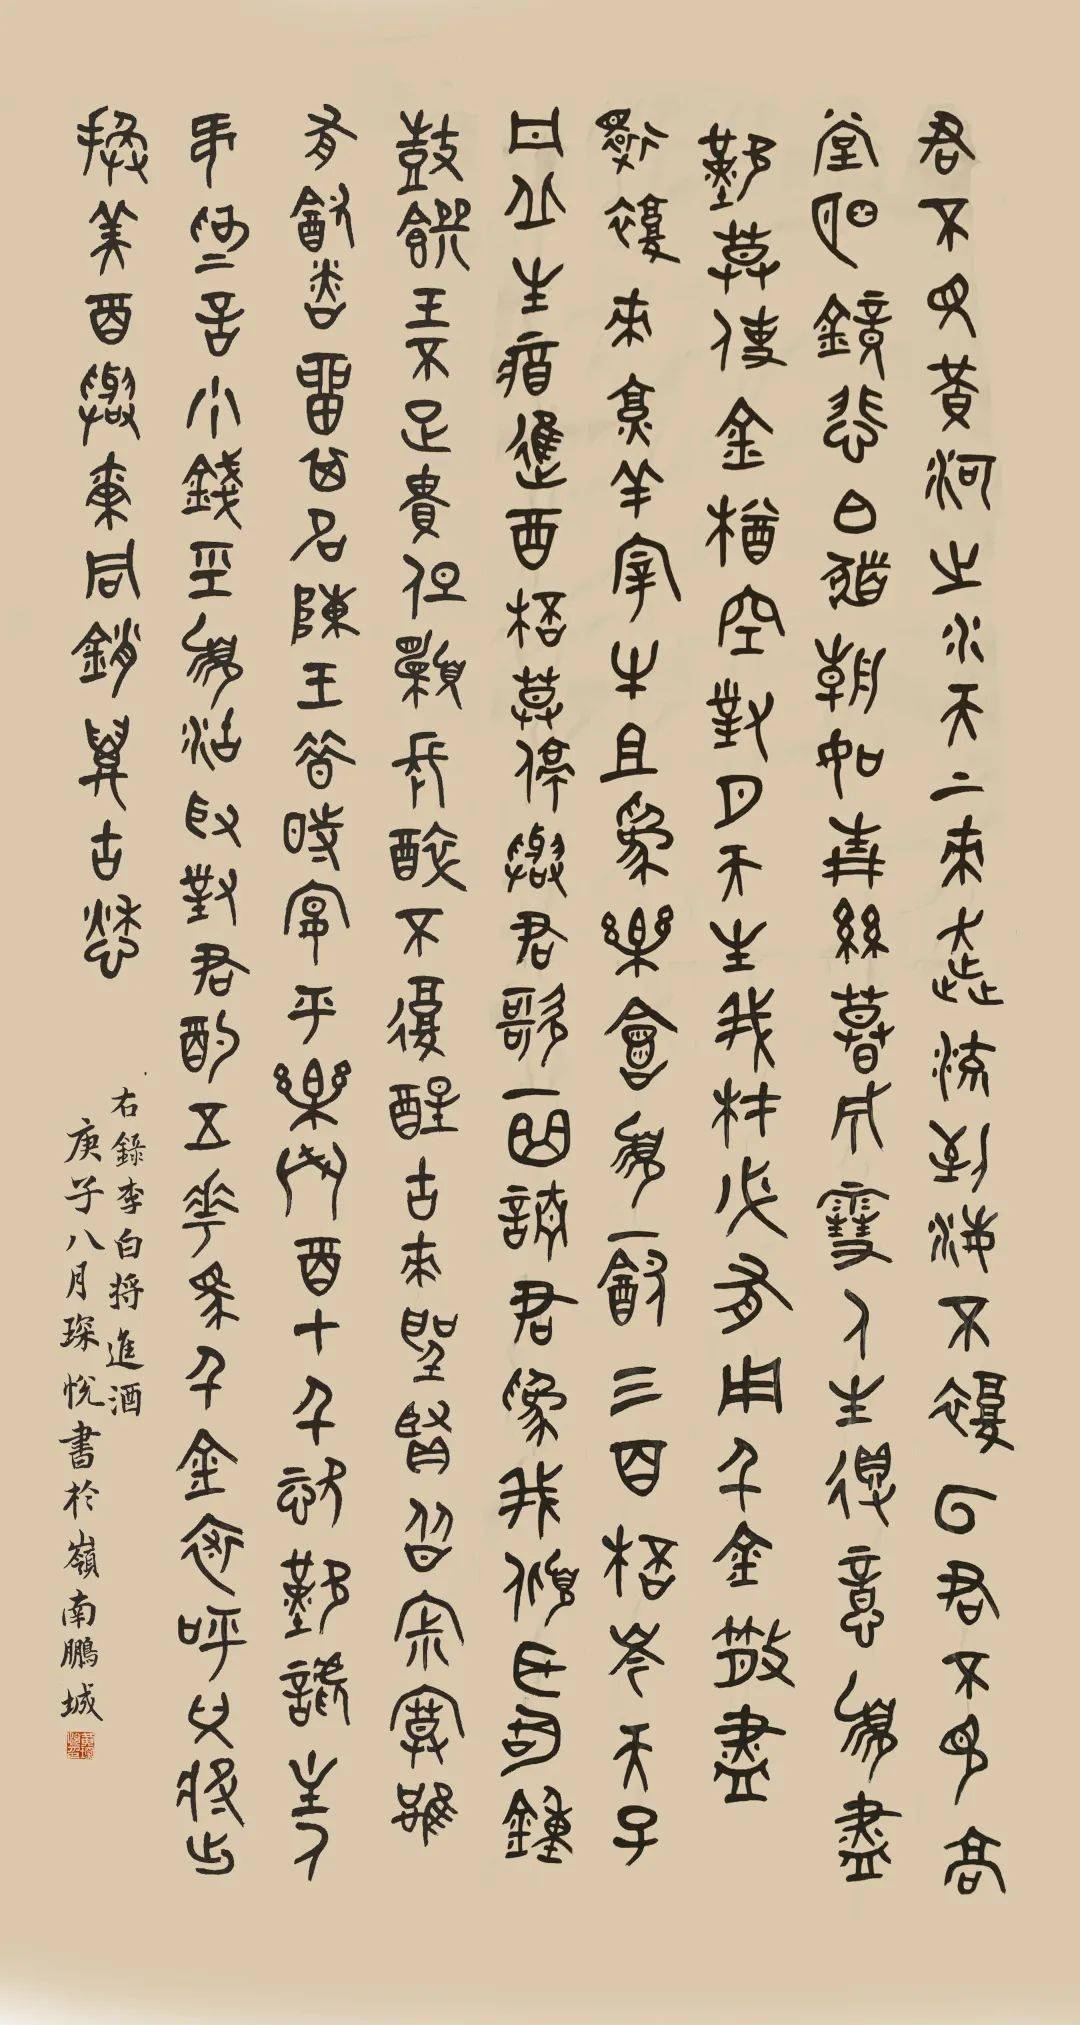 君不見黃河之水天上來奔流到海不復回君不見高
堂明鏡悲白髮朝如青絲暮成雪人生得意須盡
歡莫使金樽空對月天生我材必有用千金散盡
還復來烹羊宰牛且為樂會須一飲三百杯岑夫子
丹丘生將進酒杯莫停與君歌一曲請君為我傾耳聽鐘
鼓饌玉不足貴但願長醉不復醒古來聖賢皆寂寞唯
有飲者留其名陳王昔時宴平樂鬥酒十千恣歡謔主人
何為言少錢徑須沽取對君酌五花馬千金裘呼兒將出
換美酒與爾同銷萬古愁
右錄李白将進酒
庚子八月琛悅書於嶺南鵬城